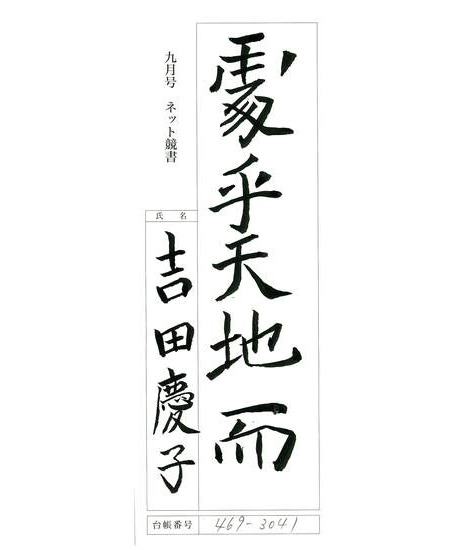 處乎天地而
九月号 ネット競書
氏名
吉田慶子
台帳番号 469-3041